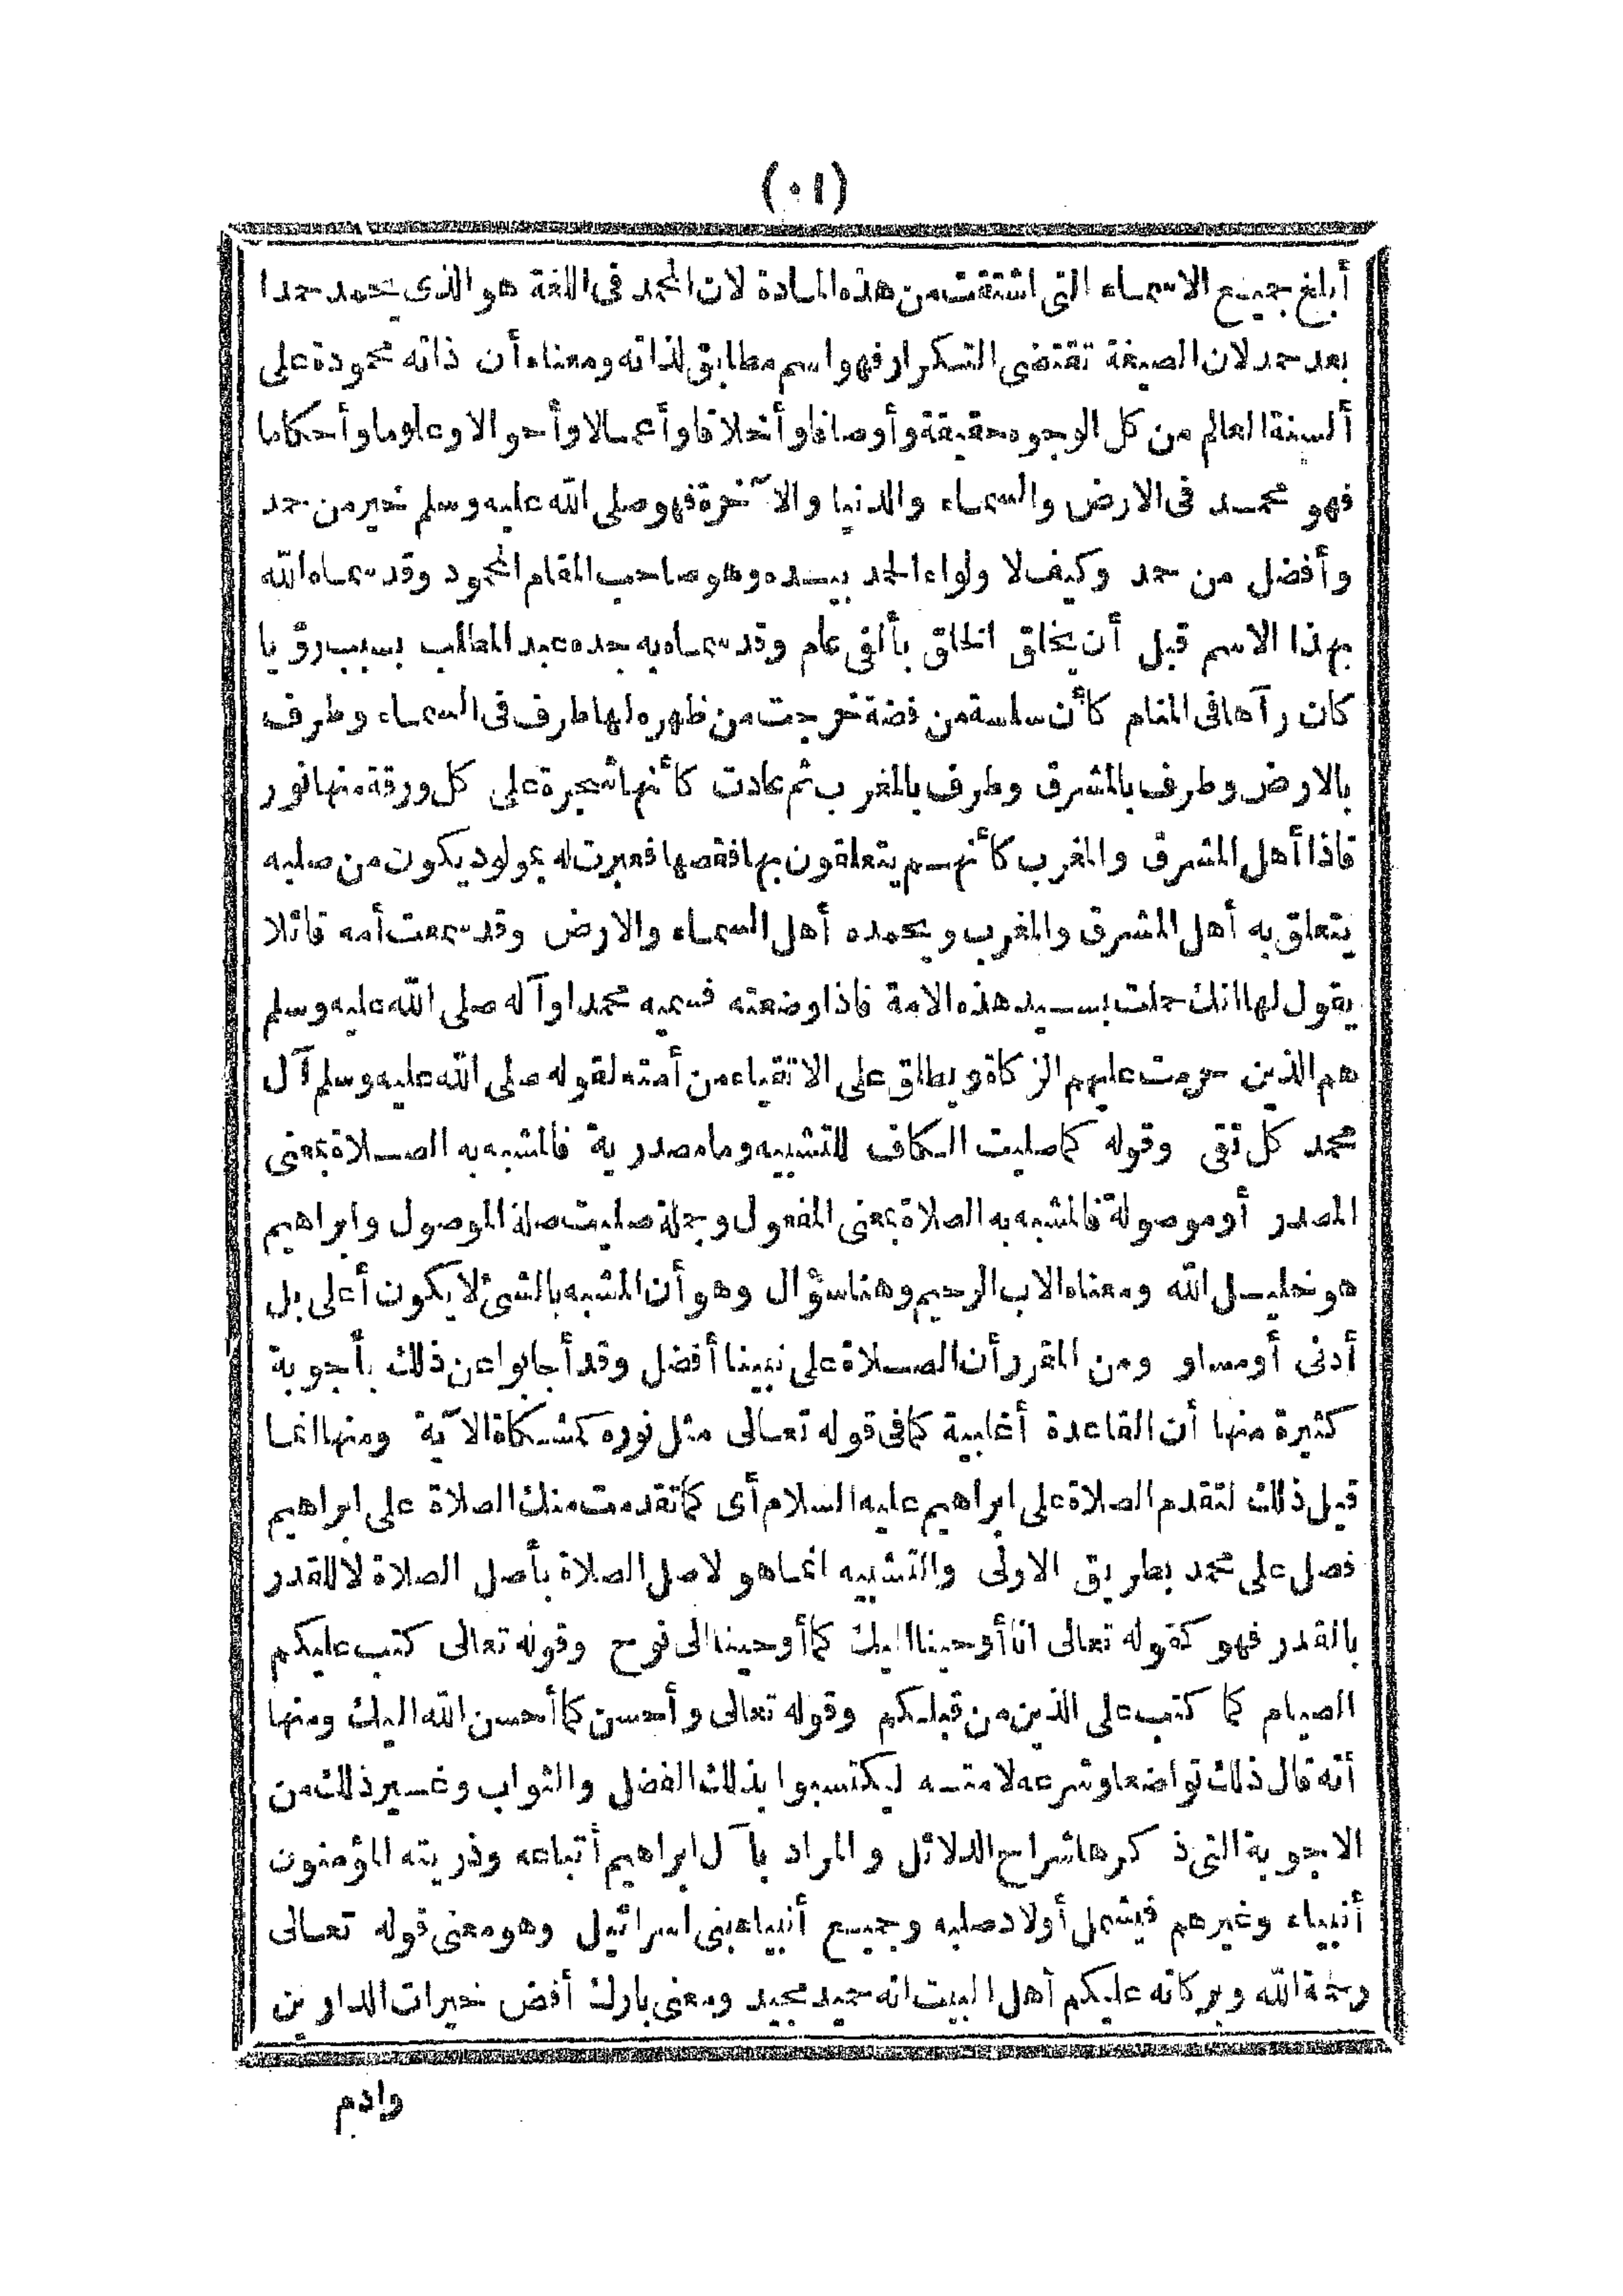 (٠١)
أبلغ جميع الاسماء التى اشتقت من هذه المادة لان المحمد فى اللغة هو الذى يحمد حمدا
بعد حمد لان الصيغة تقتضى التكرار فهو اسم مطابق لذاته ومعناه أن ذاته محمودة على
ألسنة العالم من كل الوجوه حقيقة وأوصافا وأخلاقا وأعمالا وأحوالا وعلوما وأحكاما
فهو محمد فى الارض والسماء والدنيا والآخرة فهو صلى الله عليه وسلم خير من حمد
وأفضل من حمد وكيف لا ولواء الحمد بيده وهو صاحب المقام المحمود وقد سماه الله
بهذا الاسم قبل أن يخلق الخلق بألفى عام وقد سماه به جده عبد المطلب بسبب رؤيا
كان رآها فى المنام كأن سلسة من فضة خرجت من ظهره لها طرف فى السماء وطرف
بالارض وطرف بالمشرق وطرف بالمغرب ثم عادت كأنها شجرة على كل ورقة منها نور
فاذا أهل المشرق والمغرب كأنهم يتعلقون بها فقصها فعبرت له بمولود يكون من صلبه
يتعلق به أهل المشرق والمغرب ويحمده أهل السماء والارض وقد سمعت أمه قائلا
يقول لها انك حملت بسيد هذه الامة فاذا وضعته فسميه محمدا وآله صلى الله عليه وسلم
هم الذين حرمت عليهم الزكاة ويطلق على الاتقياء من أمته لقوله صلى الله عليه وسلم آل
محمد كل تقى وقوله كما صليت الكاف للتشبيه وما مصدرية فالمشبه به الصلاة بمعنى
المصدر أو موصولة فالمشبه به الصلاة بمعنى المفعول وجملة صليت صلة الموصول وابراهيم
هو خليل الله ومعناه الاب الرحيم وهنا سؤال وهو أن المشبه بالشئ لا يكون أعلى بل
أدنى أو مساو ومن المقرر أن الصلاة على نبينا أفضل وقد أجابوا عن ذلك بأجوبة
كثيرة منها أن القاعدة أغلبية كما فى قوله تعالى مثل نوره كمشكاة الآية ومنها انما
قيل ذلك لتقدم الصلاة على ابراهيم عليه السلام أى كما تقدمت منك الصلاة على ابراهيم
فصل على محمد بطريق الاولى والتشبيه انما هو لاصل الصلاة بأصل الصلاة لا للقدر
بالقدر فهو كقوله تعالى انا أوحينا اليك كما أوحينا الى نوح وقوله تعالى كتب عليكم
الصيام كما كتب على الذين من قبلكم وقوله تعالى وأحسن كما أحسن الله اليك ومنها
أنه قال ذلك تواضعا وشرعه لامته ليكتسبوا بذلك الفضل والثواب وغير ذلك من
الاجوبة التى ذكرها شراح الدلائل والمراد بآل ابراهيم أتباعه وذريته المؤمنون
أنبياء وغيرهم فيشمل أولاد صلبه وجميع أنبياء بنى اسرائيل وهو معنى قوله تعالى
رحمة الله وبركاته عليكم أهل البيت انه حميد مجيد ومعنى بارك أفض خيرات الدارين
وادم